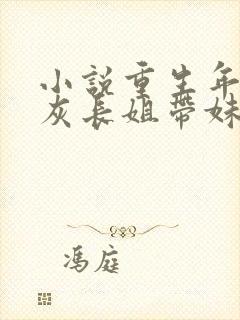 小説重生年
灰長姐帶妹
馮庭